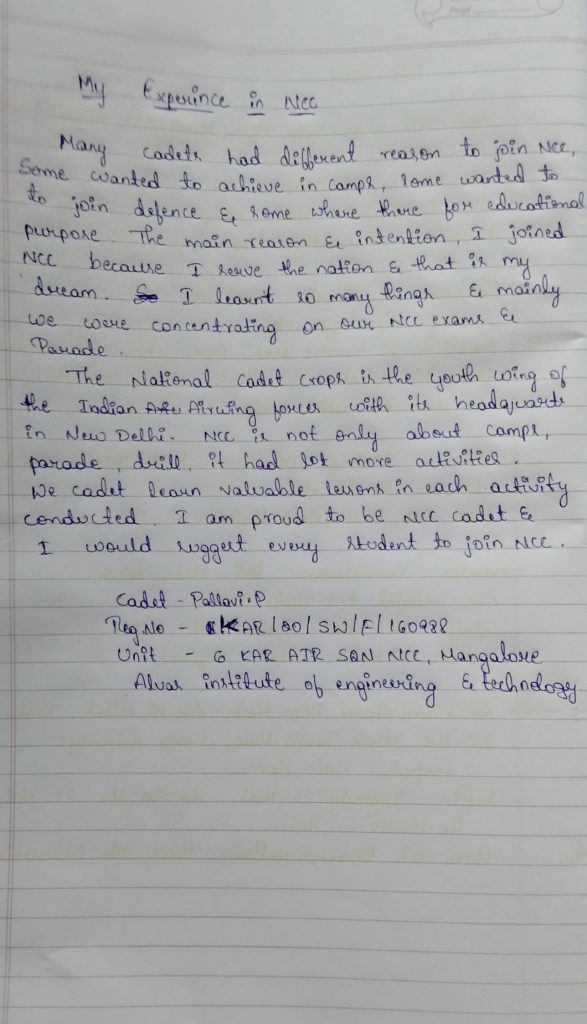 Page
My Experince in NCC
Many cadets had different reason to join NCC,
Some wanted to achieve in camps, some wanted to
to join defence & some where there for educational
purpose. The main reason & intention, I joined
NCC because I serve the nation & that is my
dream. So I learnt so many things & mainly
we were concentrating on our NCC exams &
Parade.
The National Cadet Crops is the youth wing of
the Indian Airwing forces with its headquarts
in New Delhi. NCC is not only about camps,
parade, drill, it had lot more activities.
We cadet learn valuable lessons in each activity
conducted. I am proud to be NCC cadet &
I would suggest every student to join NCC.
Cadet - Pallavi.P
Reg.No - KAR/80/SW/F/160988
Unit - 6 KAR AIR SQN NCC, Mangalore
Alvas institute of engineering & technology.